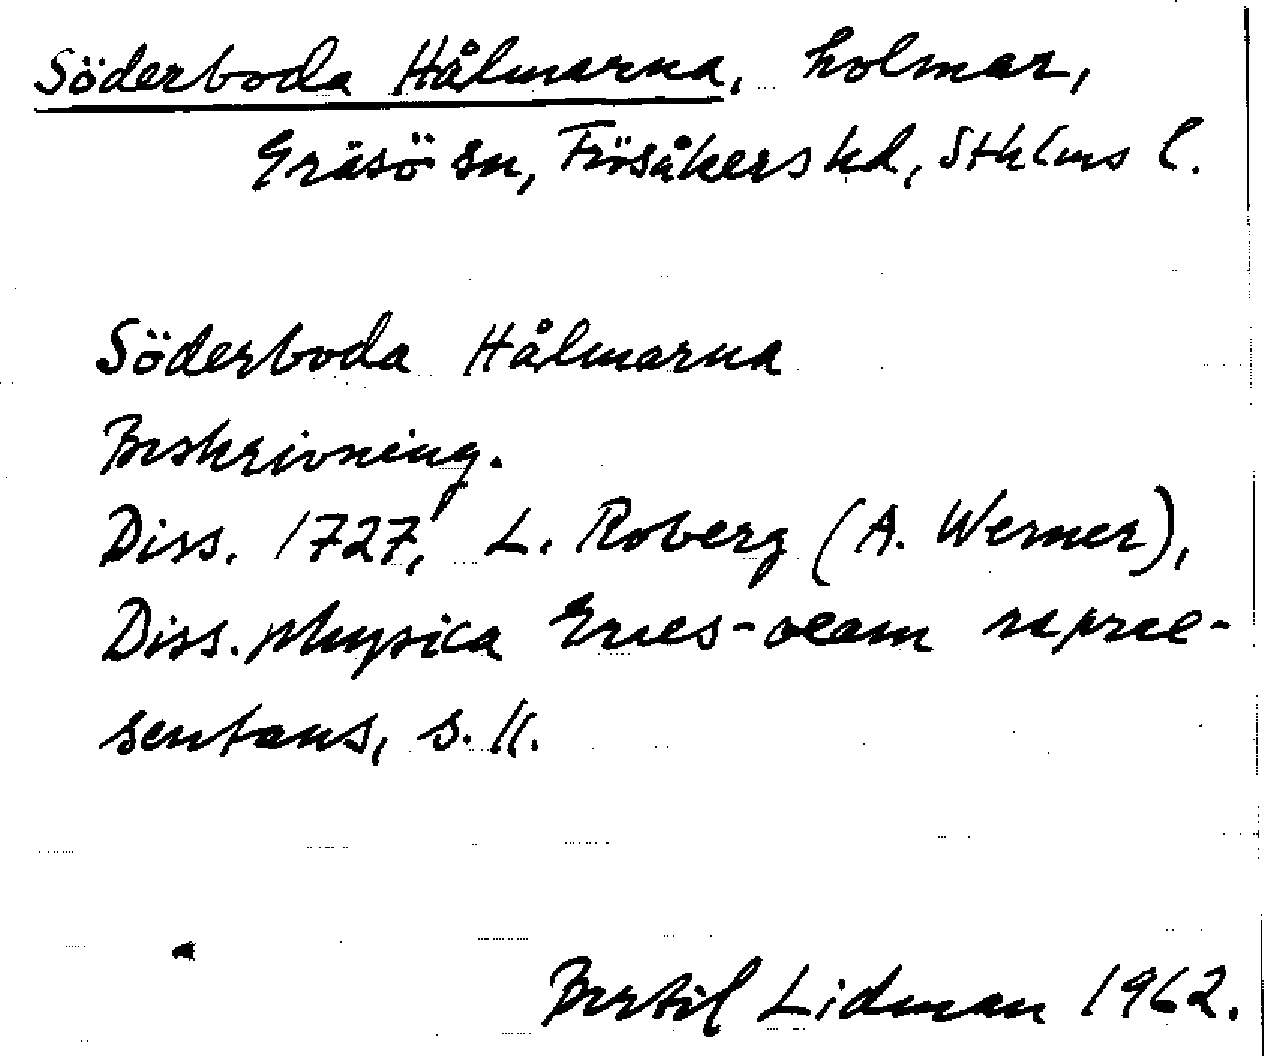 Söderboda Hålmarna, holmar,
Gräsö sn, Frösåkers hd, Sthlms l.
Söderboda Hålmarna
Beskrivning.
Diss. 1727, L. Roberg (A. Werner),
Diss. physica Grves-oeam reprae-
sentans, s. 11.
Bertil Lidman 1962.